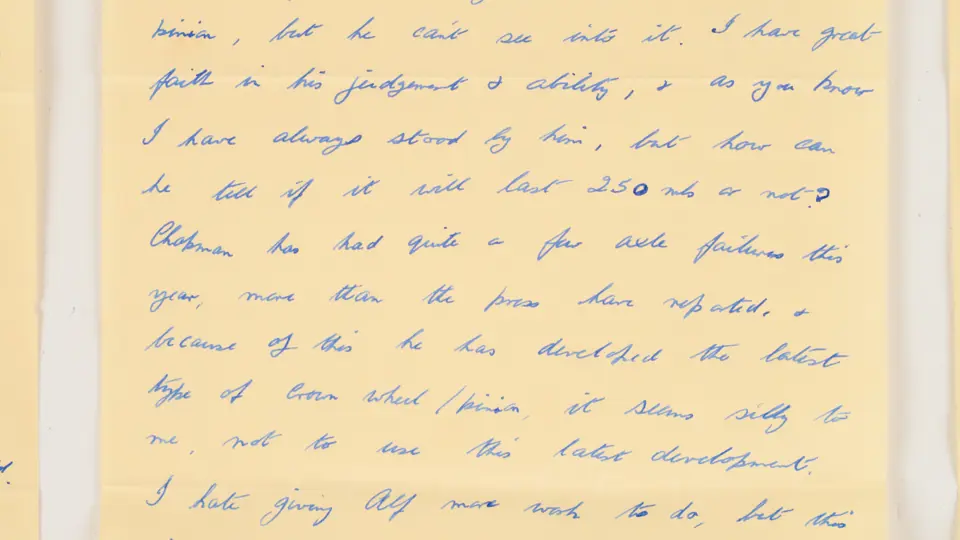 pinion, but he can't see into it. I have great
faith in his judgement & ability, & as you know
I have always stood by him, but how can
he tell if it will last 250 mls or not?
Chapman has had quite a few axle failures this
year, more than the press have reported, &
because of this he has developed the latest
type of crown wheel/pinion, it seems silly to
me, not to use this latest development.
I hate giving Alf more work to do, but this